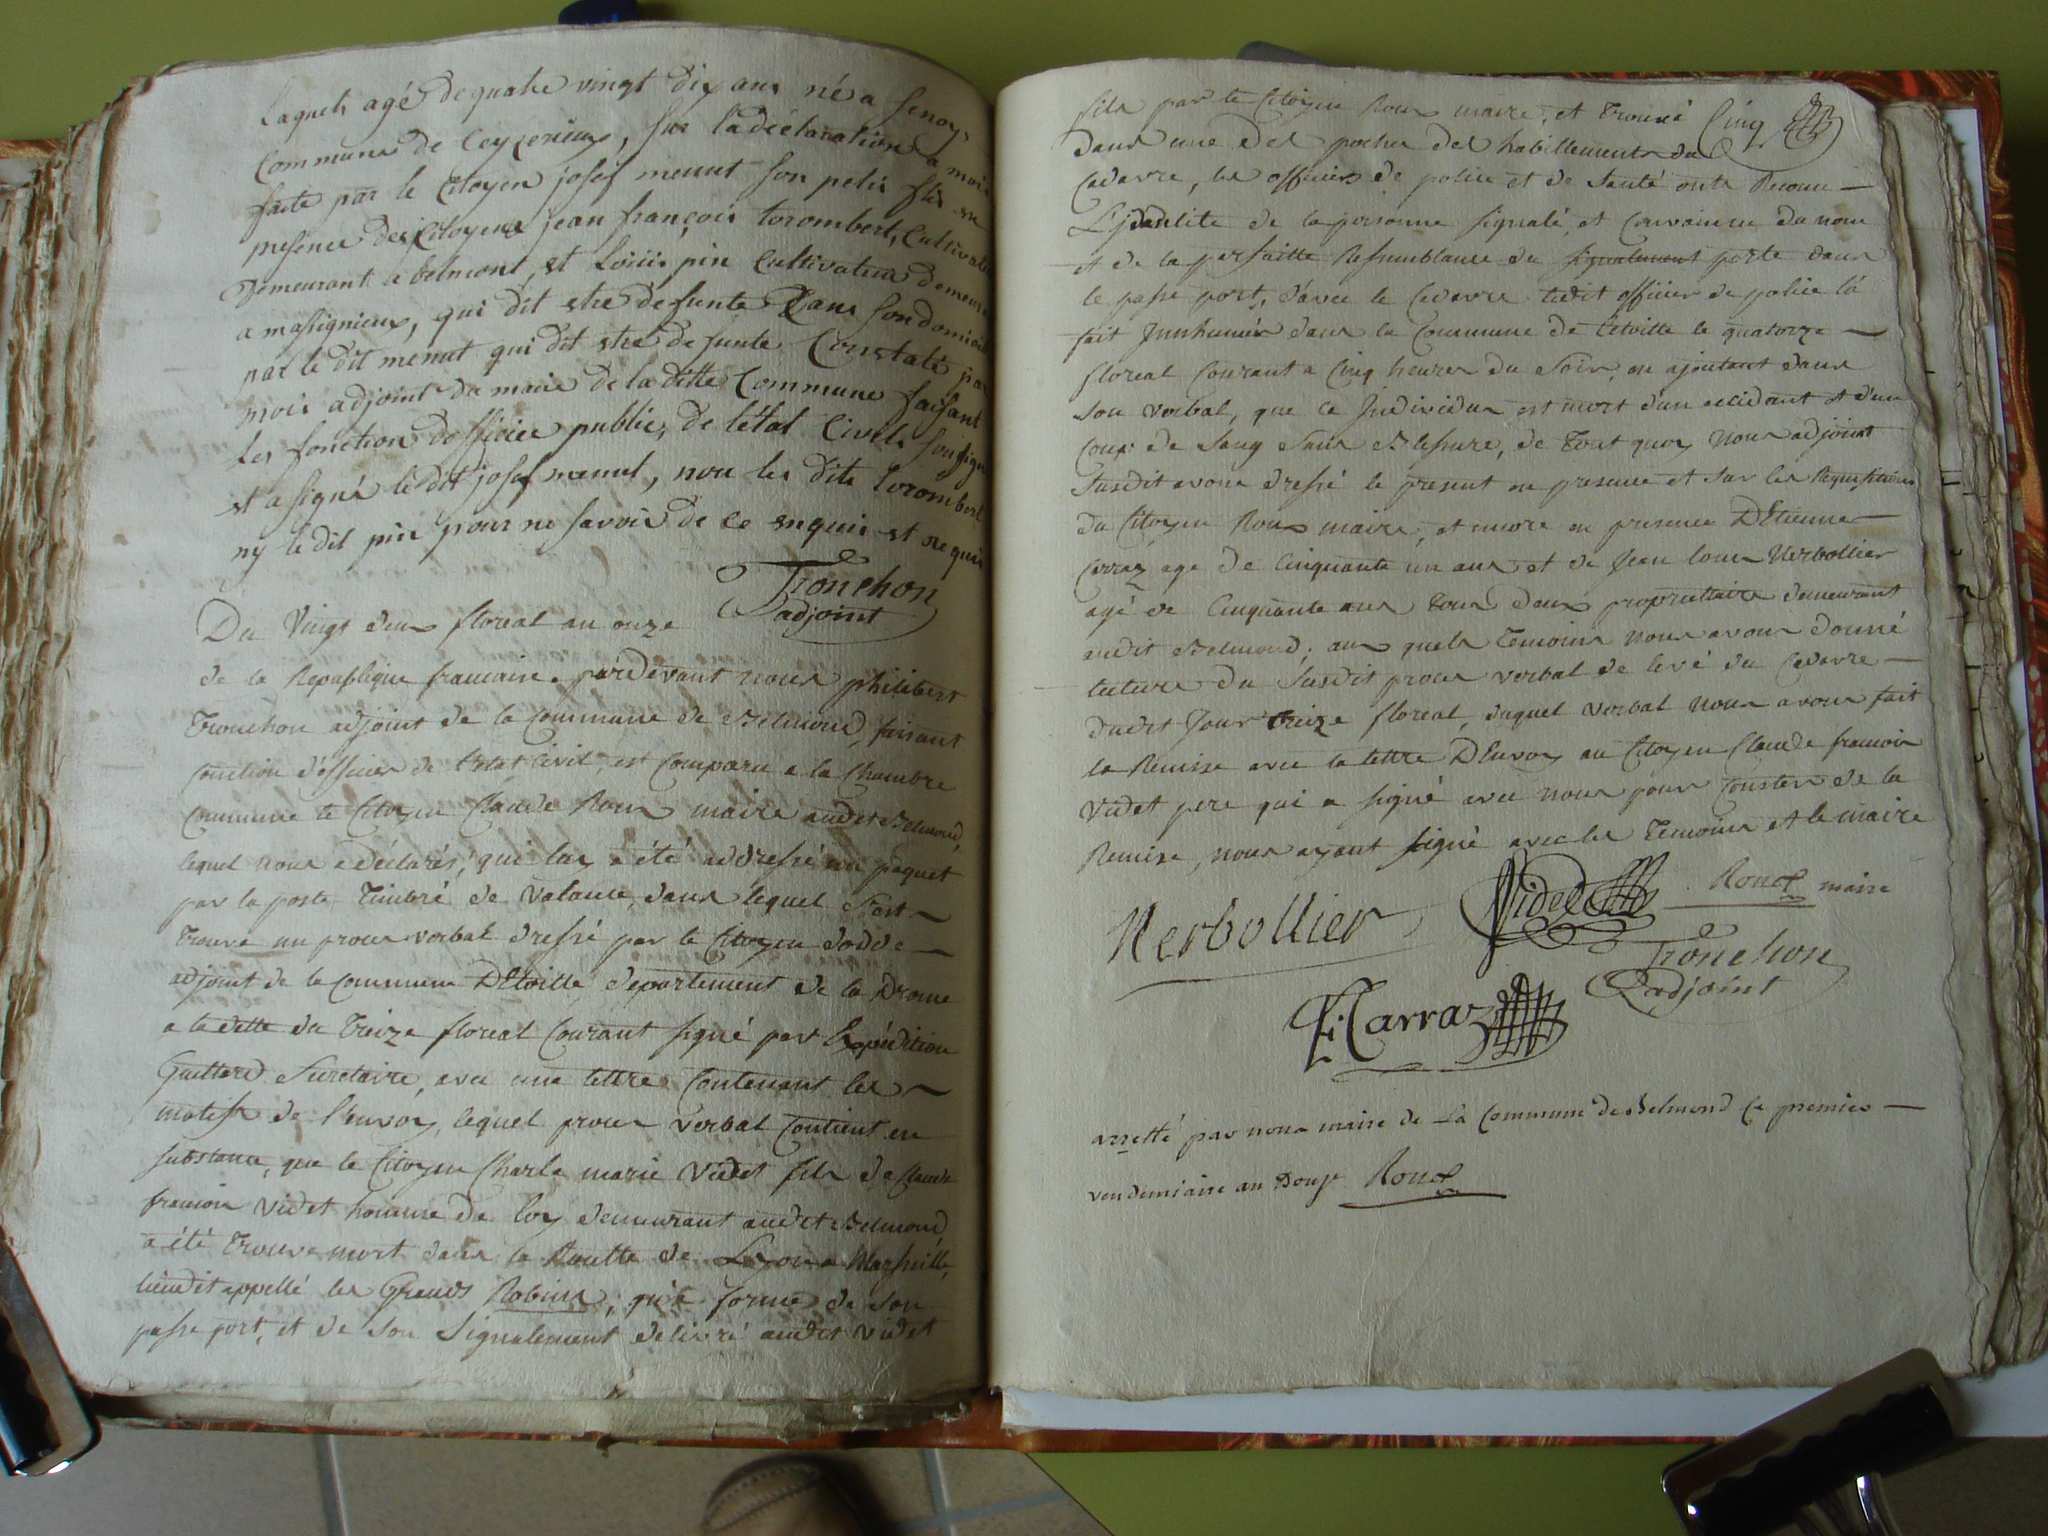 Laquels agé de quatre vingt dix ans né a
commune de Ceyzerieux, sur la déclaration a moi
faite par le Citoyen josef menut son petis fils en
presence des Citoyens jean françois torombert, Cultivateur
demeurant a belmont, et Loüis pin Cultivateur demeurant
a massignieux, qui dit etre defunte dans son domicile
par le dit menut qui dit etre defunte Constaté par
moi adjoint du maire de la ditte Commune faisant
les fonction d'officier public, de l'état Civils Soussigné
et a signé le dit josef menut, non les dits torombert
ny le dit pin pour ne savoir de ce enquis et requis
Tronchon
adjoint
Du Vingt deux floreal an onze
de la Republique francaise. pardevant nous philibert
Tronchon adjoint de la commune de Belmond, faisant
fonction d'officier de l'etat Civil, est comparu a la Chambre
Commune le Citoyen Claude Roux maire audit Belmond,
lequel nous a déclarés, qui luy a été addressé un paquet
par la poste Timbré de Valance, dans lequel s'est
trouvé un proces verbal dressé par le Citoyen dodde
adjoint de la commune D'Etoille, departement de la Drome
a la datte du treize floreal Courant signé par Expédition
Guittard Secretaire, avec une lettre Contenant les
motifs de l'envoy, lequel proces verbal Contient en
substance, que le Citoyen Charle marie Videt fils de Claude
francois Videt homme de loy demeurant audit Belmond,
a été trouvé mort dans la Routte de Lyon a Marseille,
lieudit appellé les Grands Robins, qu'a forme de son
passe port, et de son Signalement delivré audit Videt
fils par le Citoyen Roux maire, et trouvé Cinq
dans une des poches des habillements du
Cadavre, les officiers de police et de Santé ont Reconu
L'jdantite de la personne signalé, et convaincu du nom
et de la parfaitte Ressemblance du signalement porté dans
le passe port, d'avec le Cadavre ledit officier de police l'a
fait Jnnhumér dans la Commune de l'etoille le quatorze
floreal Courant a Cinq heures du Soir, en ajoutant dans
son verbal, que ce Jndividus est mort d'un accidant et d'un
Coup de Sang Sans Blessure, de tout quoy Nous adjoint
Susdit avons dressé le present en presence et sur les Requisitions
du Citoyen Roux maire, et encore en presence D'Etienne
Carraz agé de Cinquante un ans et de Jean louis Nerbollier
agé de Cinquante ans tous deux propriettaires demeurant
audit Belmond, aux quels temoins nous avons donné
lecture du Susdit proces verbal de levé du Cadavre
dudit Jour treize floreal, duquel verbal nous avons fait
la Remise avec la lettre D'Envoy au Citoyen Claude francois
Videt pere qui a signé avec nous pour Conster de la
Remise, nous ayant signé avec les temoins et le maire
Nerbollier Videt Roux maire
Tronchon
adjoint
E. Carraz
arretté par nous maire de La Commune de Belmond Ce premier
vendemiaire an Douze Roux